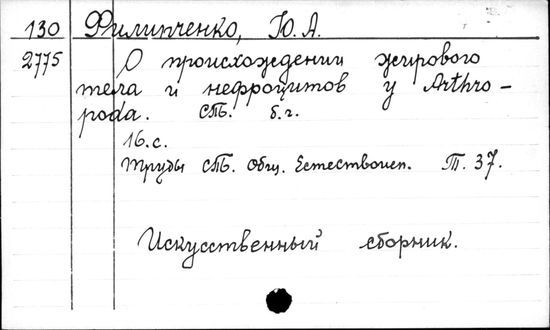 130 Филипченко, Ю. А.
2775 О происхождении жирового
тела и нефроцитов у Arthro-
poda. СПБ. б. г.
16. с.
Труды СПБ. Общ. Естествоисп. Т. 37.
Искусственный сборник.